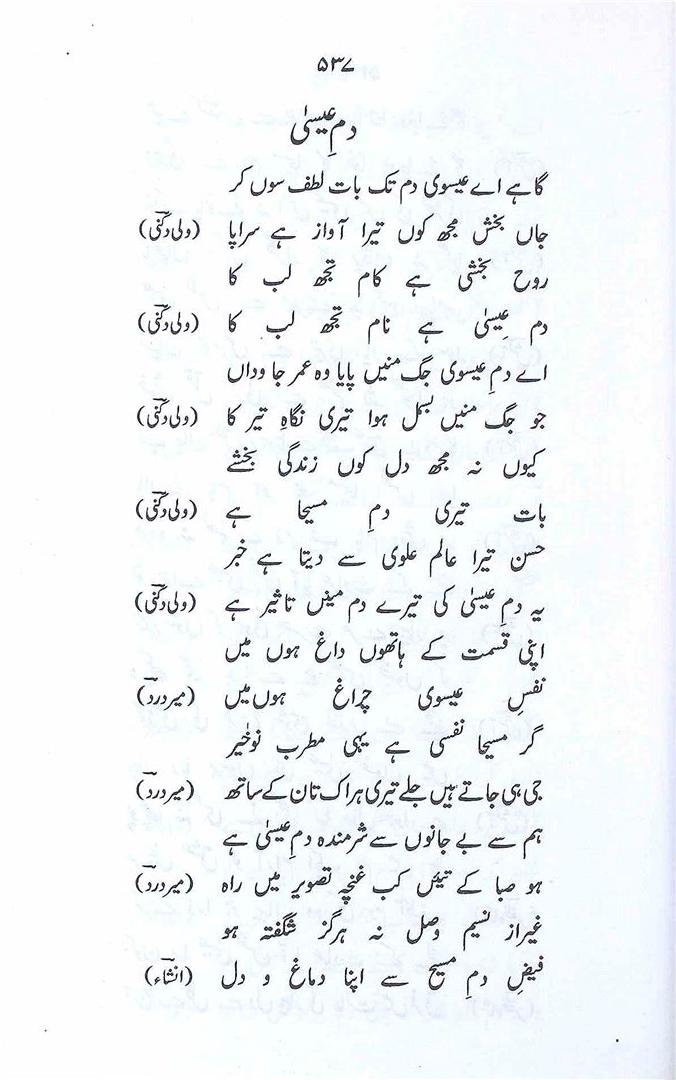 ۵۳۷
دمِ عیسیٰ
گاہے اے عیسوی دم تک بات لطف سوں کر
جاں بخش مجھ کوں تیرا آواز ہے سراپا (ولی دکنی)
روح بخشی ہے کام تجھ لب کا
دمِ عیسیٰ ہے نام تجھ لب کا (ولی دکنی)
اے دمِ عیسوی جگ منیں پایا وہ عمر جاوداں
جو جگ منیں بسمل ہوا تیری نگاہِ تیر کا (ولی دکنی)
کیوں نہ مجھ دل کوں زندگی بخشے
بات تیری دمِ مسیحا ہے (ولی دکنی)
حسن تیرا عالم علوی سے دیتا ہے خبر
یہ دمِ عیسیٰ کی تیرے دم میں تاثیر ہے (ولی دکنی)
اپنی قسمت کے ہاتھوں داغ ہوں میں
نفسِ عیسوی چراغ ہوں میں (میر درد)
گر مسیحا نفسی ہے یہی مطرب نوخیر
جی ہی جاتے ہیں چلے تیری ہر اک تان کے ساتھ (میر درد)
ہم سے بے جانوں سے شرمندہ دمِ عیسیٰ ہے
ہو صبا کے تیئں کب غنچہ تصویر میں راہ (میر درد)
غیراز نسیم وصل نہ ہرگز شگفتہ ہو
فیضِ دمِ مسیح سے اپنا دماغ و دل (انشاء)